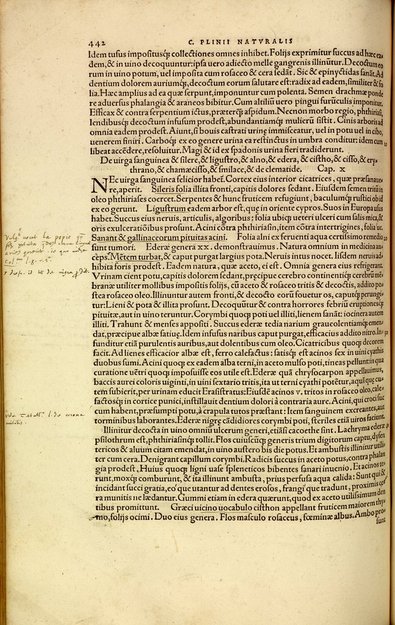 442 C. PLINII NATVRALIS
Idem tusus impositusq; collectiones omnes inhibet. Folijs exprimitur succus ad hæc eadem,
& in uino decoquuntur: ipsa uero adiecto melle gangrenis illinūtur. Decoctum eorum
in uino potum, uel imposita cum rosaceo & cera sedāt. Sic & epinyctidas sanāt. Ad
dentium dolorem auriumq;, decoctum eorum salutare est: radix ad eadem, & surculi
Hæc amplius ad ea quæ serpunt, imponuntur cum polenta. Semen drachmæ pondere
aduersus phalangia & araneos bibitur. Cum altiliū uero pingui furūculis imponitur.
Efficax & contra serpentium ictus, præterq; aspidum. Necnon morbo regio, phthiriasi,
lendibusq; decoctum infusum prodest, abundantiamq; mulierū sistit. Cinis arboris ad
omnia eadem prodest. Aiunt, si bouis castrati urinę immisceatur, uel in potu uel in cibo,
uenerem finiri. Carbōq; ex eo genere urina ea restinctus in umbra conditur: idem cum
libeat accēdere, resoluitur. Magi & id ex spadonis urina fieri tradiderunt.
De uirga sanguinea & silere, & ligustro, & alno, & edera, & cistho, & cisso, & erythrano,
& chamæcisso, & smilace, & de clematide. Cap. x
NEc uirga sanguinea felicior habet. Cortex eius interior cicatrices, quæ præsanauere,
aperit. Sileris folia illita fronti, capitis dolores sedant. Eiusdem semen tritū in
oleo phthiriases coercet. Serpentes & hunc fruticem refugiunt, baculumq; rustici ob id
ex eo gerunt. Ligustrum eadem arbor est, quæ in oriente cypros. Suos in Europa usus
habet. Succus eius neruis, articulis, algoribus: folia ubiq; ueteri ulceri cum salis mica, &
oris exulceratiōibus prosunt. Acini cōtra phthiriasin, item cōtra intertrigines, folia ue.
Sanant & gallinaceorum pituitas acini. Folia alni ex feruenti aqua certissimo remedio
sunt tumori. Ederæ genera xx. demonstrauimus. Natura omnium in medicina anceps.
Mētem turbat, & caput purgat largius pota. Neruis intus nocet. Iisdem neruis adhibita
foris prodest. Eadem natura, quæ aceto, ei est. Omnia genera eius refrigerant.
Vrinam cient potu, capitis dolorem sedant, præcipue cerebro
utiliter mollibus impositis folijs, cū aceto & rosaceo tritis & decoctis, addito postea
rosaceo oleo. Illinuntur autem fronti, & decocto eorū fouetur os, caputq; perungitur.
Lieni & pota & illita prosunt. Decoquūtur & contra horrores febriū eruptionesq;
pituitæ, aut in uino teruntur. Corymbi quoq; poti uel illiti, lienem sanāt: iocinera autem
illiti. Trahunt & menses appositi. Succus ederæ tædia narium graueolentiamq; emendat,
præcipue albæ satiuę. Idem infusus naribus caput purgat, efficacius addito nitro. Infunditur
etiā purulentis auribus, aut dolentibus cum oleo. Cicatricibus quoq; decorem
facit. Ad lienes efficacior albæ est, ferro calefactus: satisq; est acinos sex in uini cyathis
duobus sumi. Acini quoq; ex eadem alba terni, in aceto mulso poti, tineas pellunt: in qua
curatione uētri quoq; imposuisse eos utile est. Ederæ quā chrysocarpon appellauimus,
baccis aurei coloris uiginti, in uini sextario tritis, ita ut terni cyathi potētur,
subierit, per urinam educit Erasistratus: Eiusdē acinos v. tritos in rosaceo oleo,
in cortice punici, instillauit dentium dolori à contraria aure. Acini, qui croci succum
habent, præsumpti potu, à crapula tutos præstant: Item sanguinem excreantes, aut
torminibus laborantes. Ederæ nigræ cādidiores corymbi poti, steriles etiā uiros faciunt.
Illinitur decocta in uino omnium ulcerum generi, etiāsi cacoethe sint. Lachryma ederæ
psilothrum est, phthiriasinq; tollit. Flos cuiuscūq; generis trium digitorum captu, dysentericos
& aluum citam emendat, in uino austero bis die potus. Et ambustis illinitur utiliter
cum cera. Denigrant capillum corymbi. Radicis succus in aceto potus, contra phalangia
prodest. Huius quoq; ligni uase spleneticos bibentes sanari inuenio. Et acinos terunt,
moxq; comburunt, & ita illinunt ambusta, prius perfusa aqua calida: Sunt qui &
incidant succi gratia, eoq; utantur ad dentes erosos, frangiq; tradunt, proximis cera
munitis ne lædantur. Gummi etiam in edera quærunt, quod ex aceto utilissimum dentibus
promittunt. Græci uicino uocabulo cisthon appellant fruticem maiorem thymo,
folijs ocimi. Duo eius genera. Flos masculo rosaceus, fœminæ albus. Ambo pro-
sunt